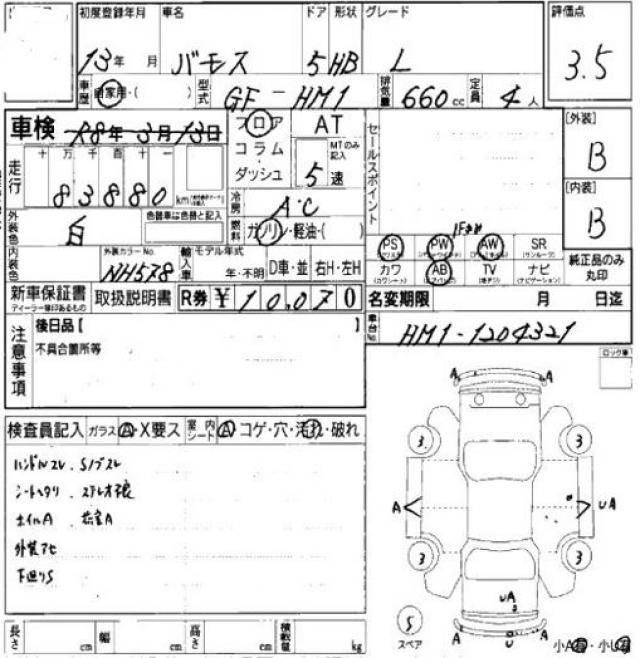 初度登録年月 車名 ドア 形状 グレード 評価点
13年 月 バモス 5 HB L 3.5
車歴 自家用・( ) 型式 GF-HM1 排気量 660cc 定員 4人
車検 R8年3月13日 フロア AT セールスポイント [外装]
コラム MTのみ記入 B
走行 十万千百十一 ダッシュ 5速
83880 km [内装]
冷房 A・C B
外装色 白 色替車は色替と記入 燃料 ガソリン・軽油・( )
PS PW AW SR
内装色 外装カラーNo. NH578 輸入車 モデル年式 年・不明 D車・並 右H・左H
カワ AB TV ナビ 純正品のみ丸印
新車保証書 取扱説明書 R券 ¥10,070 名変期限 月 日迄
ディーラー捺印あるもの
注意事項 後日品【 】 車台No. HM1-1204321
不具合箇所等
検査員記入 ガラス A・X要ス 室内シート A コゲ・穴・汚れ・破れ
ハンドルスレ、Sノブスレ
シートヘタリ、ステレオ不良
ホイルA
外装アセ
下廻りS
A A
3 3
A UA
3 3
UA
S
スペア
A U A
長さ cm 幅 cm 高さ cm 積載量 kg 小A・小U